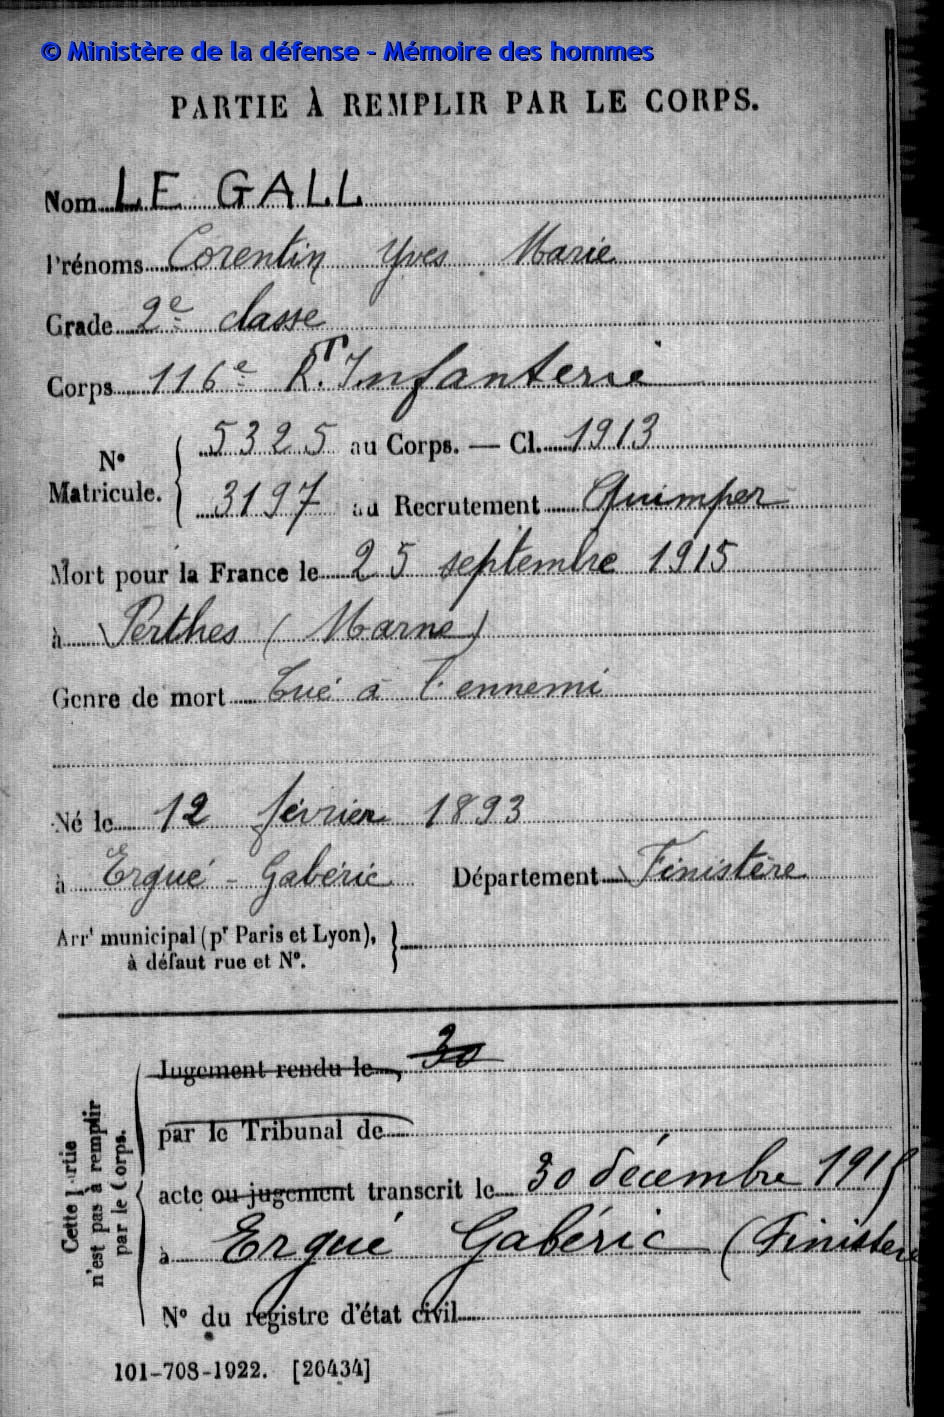 © Ministère de la défense - Mémoire des hommes
PARTIE À REMPLIR PAR LE CORPS.
Nom LE GALL
Prénoms Corentin Yves Marie
Grade 2e classe
Corps 116e R.T Infanterie
N° Matricule. { 5325 au Corps. — Cl. 1913
3197 au Recrutement Quimper
Mort pour la France le 25 septembre 1915
à Perthes (Marne)
Genre de mort Tué à l'ennemi
Né le 12 février 1893
à Ergué-Gabéric Département Finistère
Arrt municipal (pr Paris et Lyon),
à défaut rue et N°.
Cette partie
n'est pas à remplir
par le Corps.
Jugement rendu le 30
par le Tribunal de
acte ou jugement transcrit le 30 décembre 1915
à Ergué Gabéric (Finistère
N° du registre d'état civil
101-708-1922. [26434]